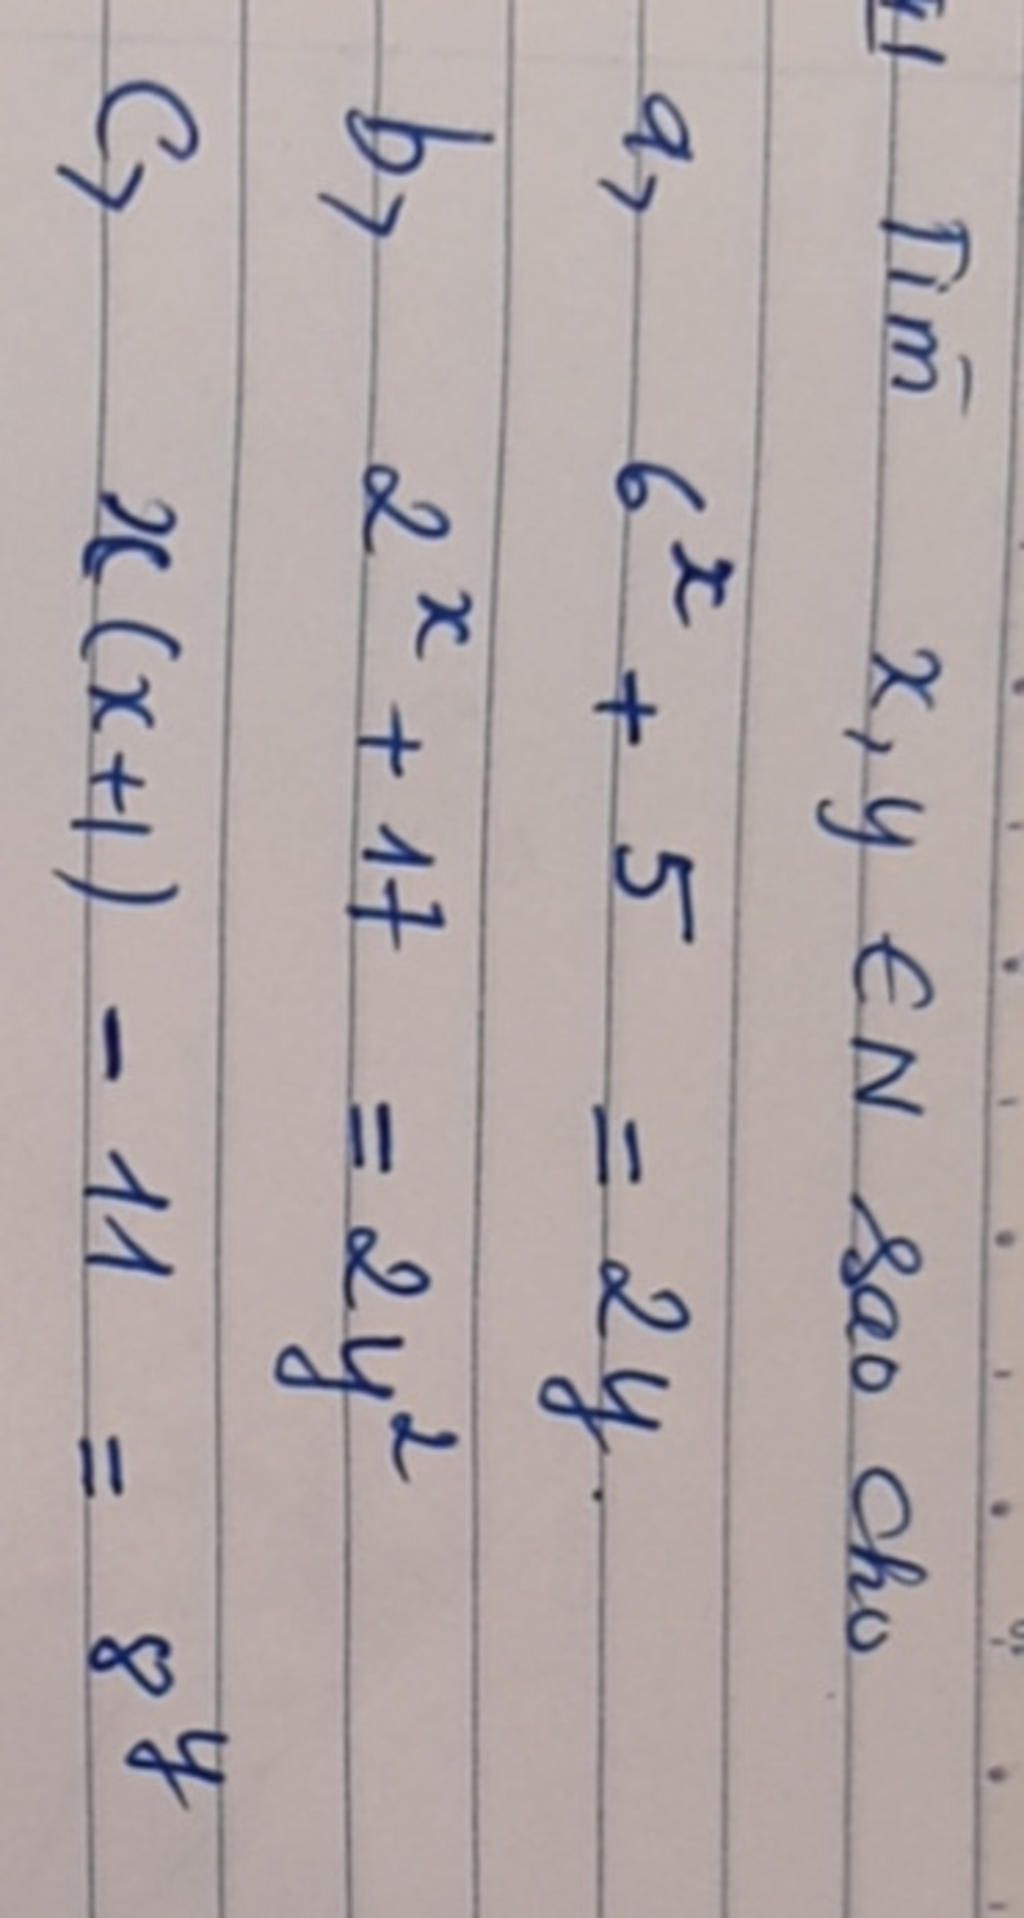 Tìm x, y ∈ N sao cho
a, 6^x + 5 = 2y.
b, 2^x + 17 = 2y^2
c, x(x+1) - 11 = 8^y